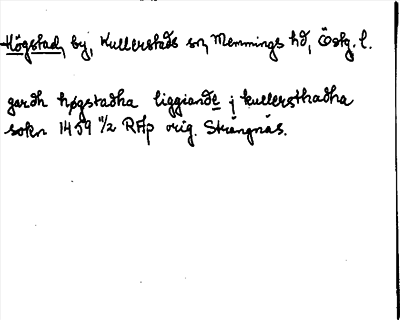 Högstad, by, Kullerstads sn, Memmings hd, Östg. l.
gardh høgstadha liggiande j kullersthadha
sokn 1459 11/2 RAp orig. Strängnäs.